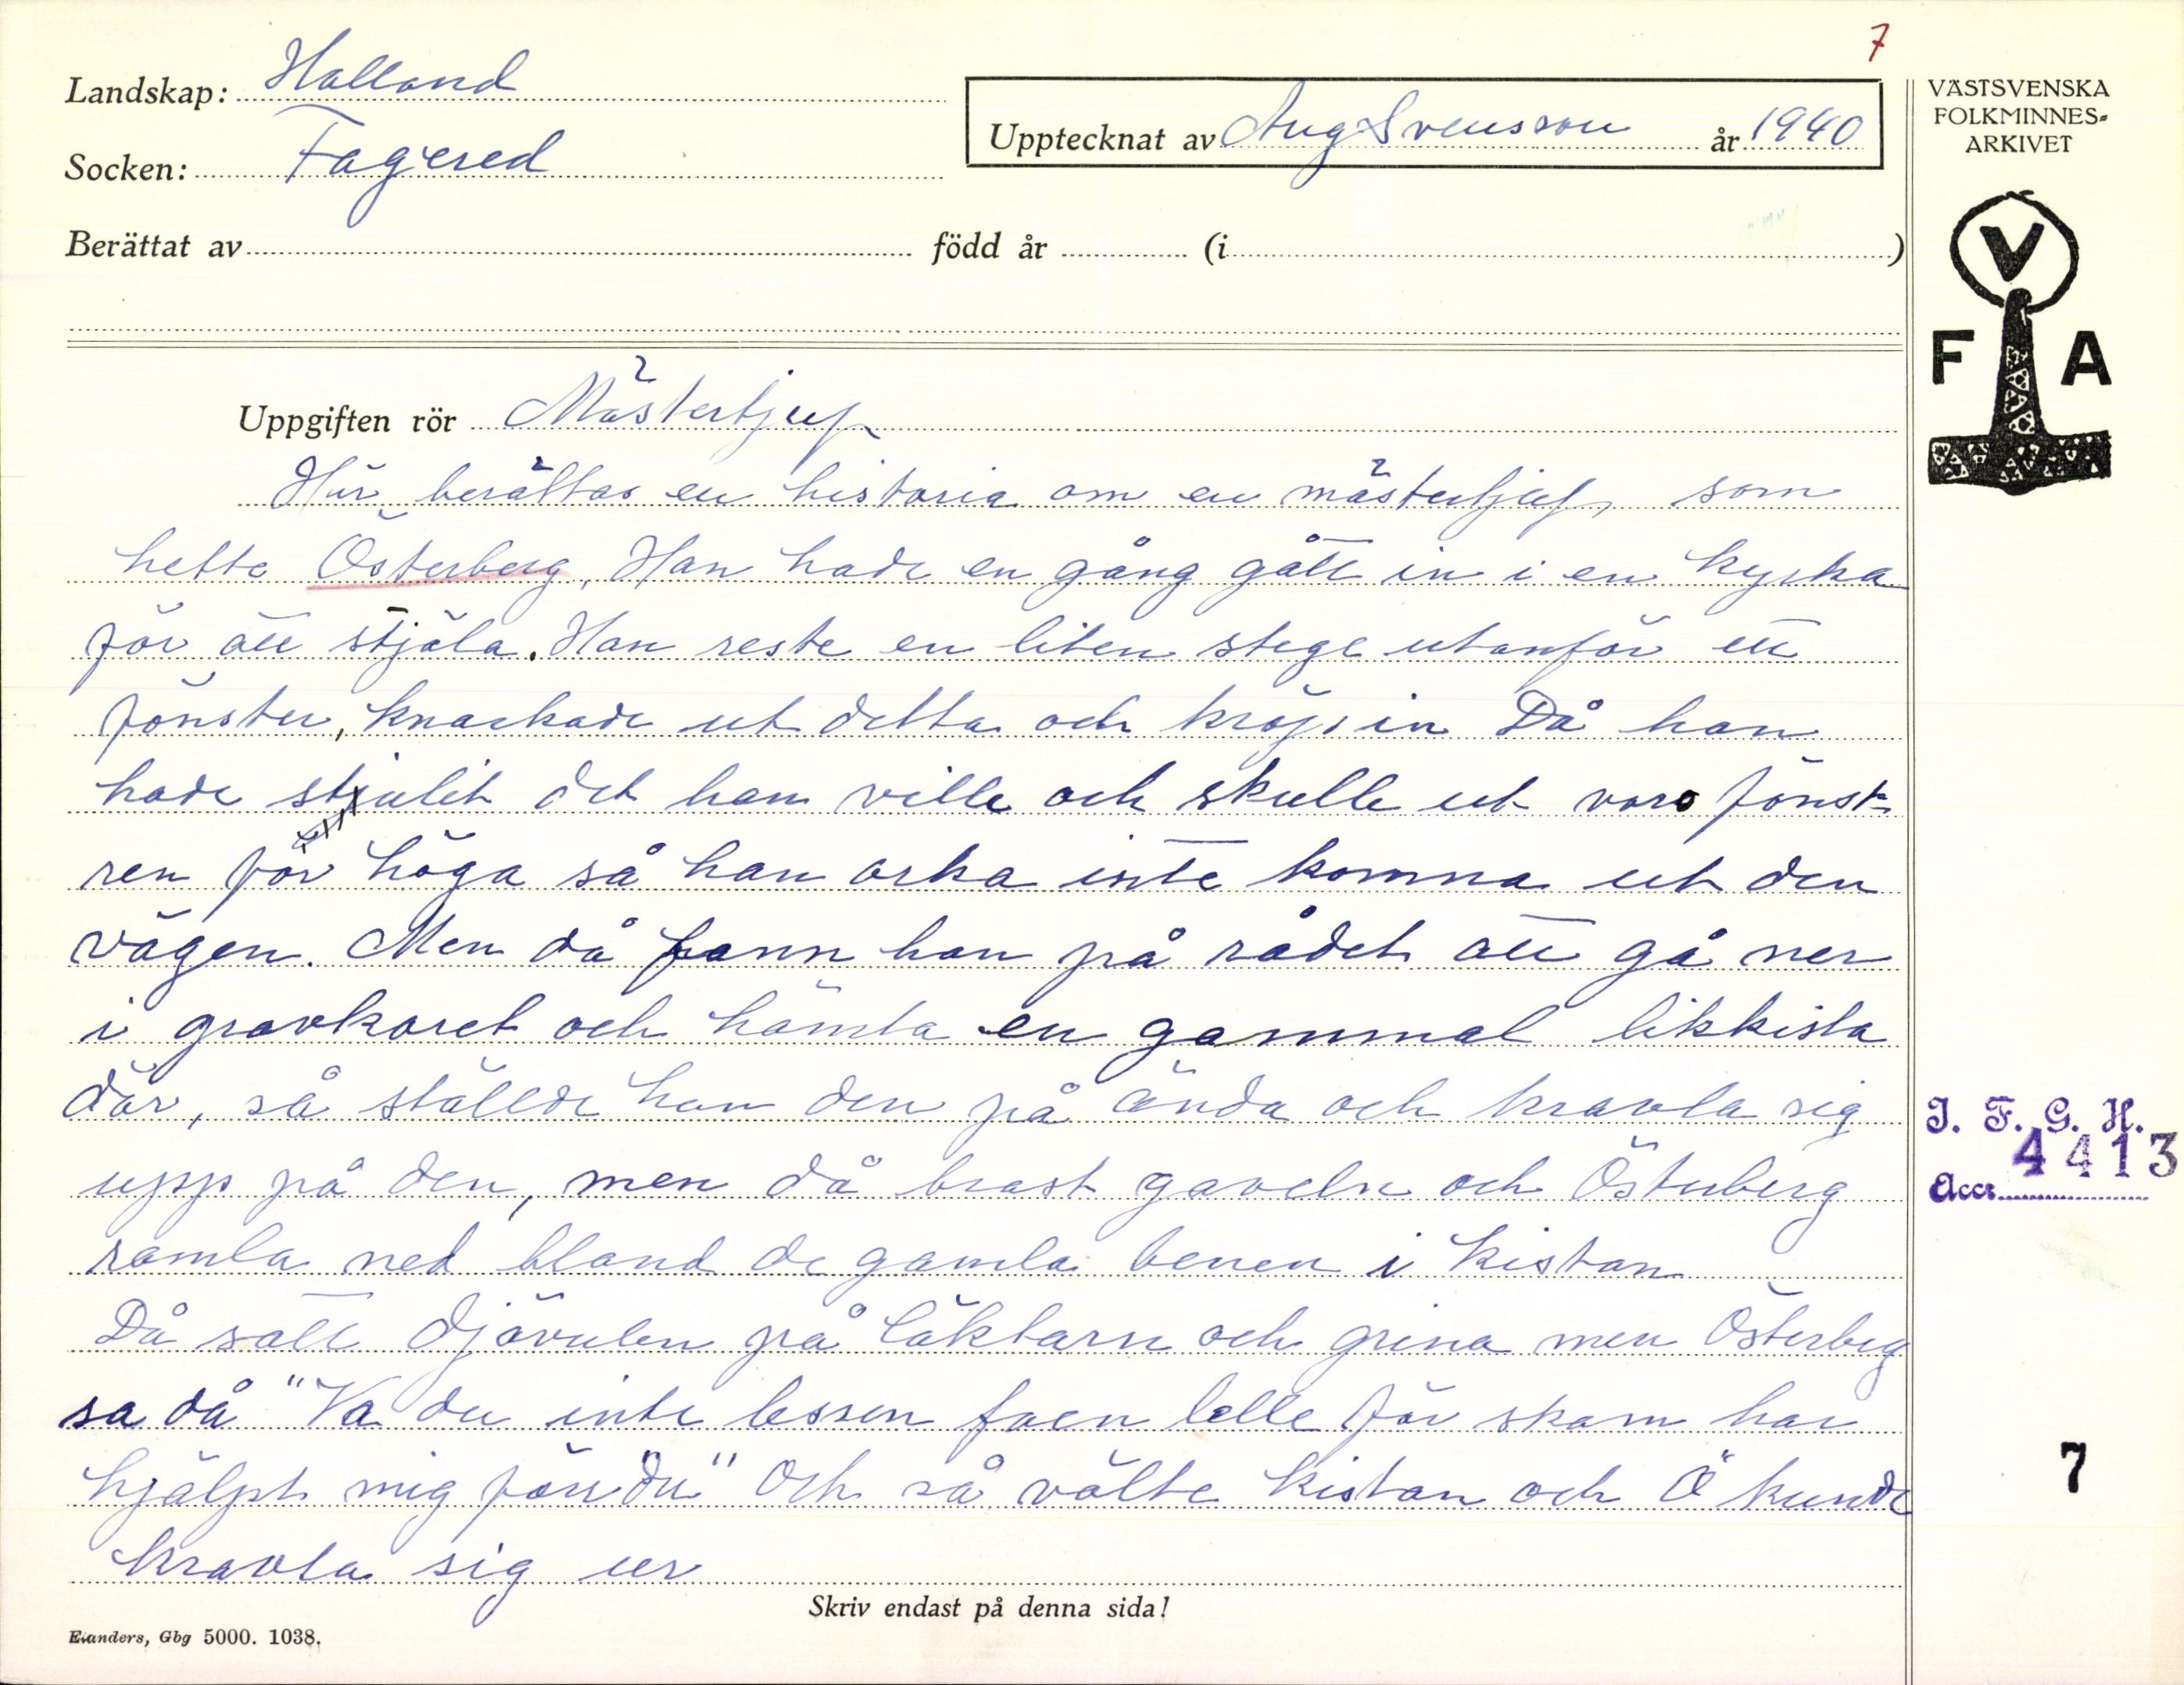 7
Landskap: Halland
Socken: Fagered
Upptecknat av Aug Svensson år 1940
Berättat av född år (i )
VÄSTSVENSKA
FOLKMINNES-
ARKIVET
V
F A
Uppgiften rör Mästertjuf
Här berättas en historia om en mästertjuf, som
hette Österberg, Han hade en gång gått in i en kyrka
för att stjäla. Han reste en liten stege utanför ett
fönster, knackade ut detta och kröp in Då han
hade stjulit det han ville och skulle ut voro fönst-
ren för höga så han orka inte komma ut den
vägen. Men då fann han på rådet att gå ner
i gravkoret och hämta en gammal likkista
där, så ställde han den på ända och kravla sig
upp på den, men då brast gaveln och Österberg
ramla ned bland de gamla benen i kistan
Då satt djävulen på läktarn och grina men Österberg
sa då "Va du inte lessen faen lelle för skam har
hjälpt mig förr du" Och så välte kistan och Ö kunde
kravla sig ur
I. F. G. H.
Acc. 4413
7
Skriv endast på denna sida!
Elanders, Gbg 5000. 1038.